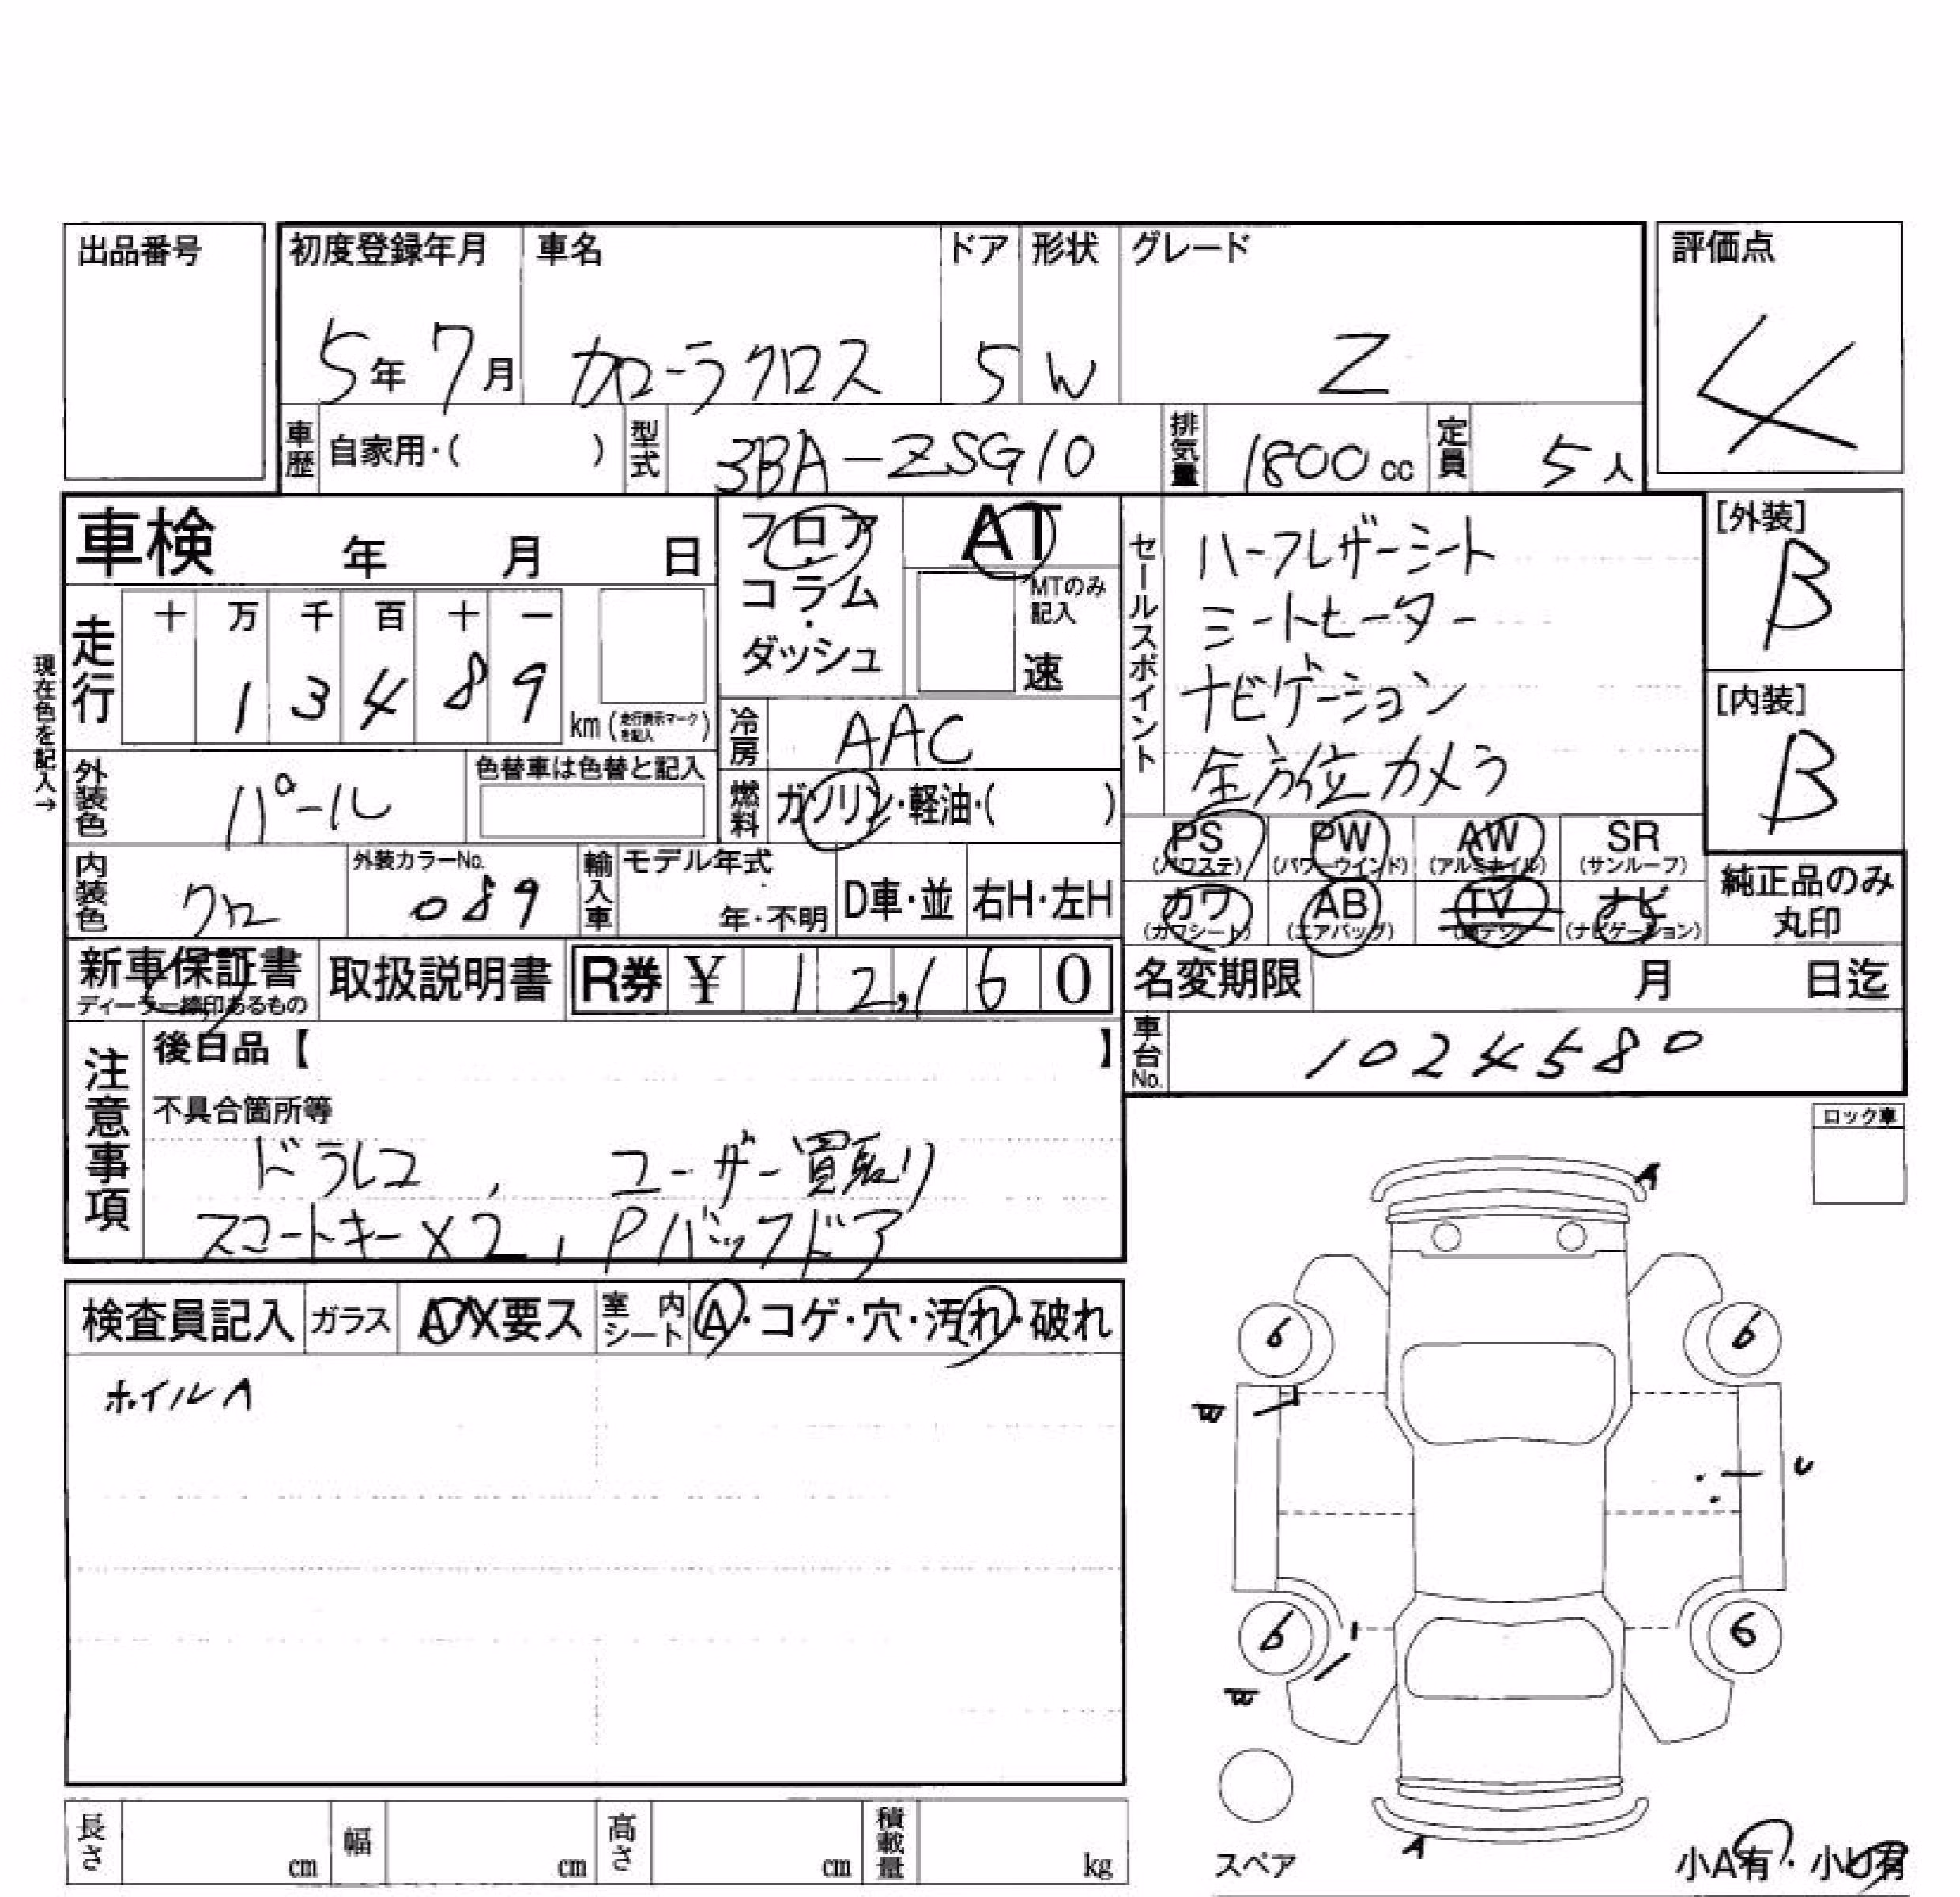 出品番号
初度登録年月 車名 ドア 形状 グレード 評価点
5年7月 カローラクロス 5 W Z 4
車歴 自家用・( ) 型式 3BA-ZSG10 排気量 1800cc 定員 5人
車検 年 月 日
フロア・コラム・ダッシュ
AT
MTのみ記入
速
セールスポイント
ハーフレザーシート
シートヒーター
ナビゲーション
全方位カメラ
[外装]
B
[内装]
B
現在色を記入→
走行 十 万 千 百 十 一
1 3 4 8 9
km(走行表示マークを記入)
冷房 AAC
外装色 パール 色替車は色替と記入
燃料 ガソリン・軽油・( )
PS (パワステ) PW (パワーウインド) AW (アルミホイル) SR (サンルーフ)
内装色 クロ 外装カラーNo. 089 輸入車 モデル年式 年・不明 D車・並 右H・左H
カワ (カワシート) AB (エアバッグ) TV ナビ (ナビゲーション)
純正品のみ丸印
新車保証書 ディーラー捺印あるもの 取扱説明書 R券 ¥ 12,160
名変期限 月 日迄
車台No. 1024580
注意事項
後日品【 】
不具合箇所等
ドラレコ, ユーザー買取り
スマートキー×2, Pバックドア
ロック車
検査員記入 ガラス A・X要ス 室内シート A・コゲ・穴・汚れ・破れ
ホイルA
A
6 6
W
U
6 6
W
A
スペア
小A有・小U有
長さ cm 幅 cm 高さ cm 積載量 kg